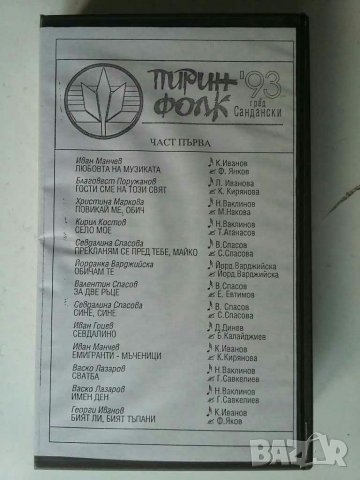 ПИРИН '93
ФОЛК град Сандански
ЧАСТ ПЪРВА
Иван Манчев К.Иванов
ЛЮБОВТА НА МУЗИКАТА Ф. Янков
Благовест Поружанов Л. Иванова
ГОСТИ СМЕ НА ТОЗИ СВЯТ К. Кирянова
Христина Маркова Н.Ваклинов
ПОВИКАЙ МЕ, ОБИЧ М.Накова
Кирил Костов Н.Ваклинов
СЕЛО МОЕ Т.Атанасов
Севдалина Спасова В.Спасов
ПРЕКЛАНЯМ СЕ ПРЕД ТЕБЕ, МАЙКО С.Спасова
Йорданка Варджийска Йорд.Варджийска
ОБИЧАМ ТЕ Йорд.Варджийска
Валентин Спасов В.Спасов
ЗА ДВЕ РЪЦЕ Е. Евтимов
Севдалина Спасова В. Спасов
СИНЕ, СИНЕ С.Спасова
Иван Гоцев Д.Динев
СЕВДАЛИНО Б.Калайджиев
Иван Манчев К.Иванов
ЕМИГРАНТИ - МЪЧЕНИЦИ К.Кирянова
Васко Лазаров Н.Ваклинов
СВАТБА Г.Савкелиев
Васко Лазаров Н.Ваклинов
ИМЕН ДЕН Г.Савкелиев
Георги Иванов К.Иванов
БИЯТ ЛИ, БИЯТ ТЪПАНИ Ф.Яков
BAZAR